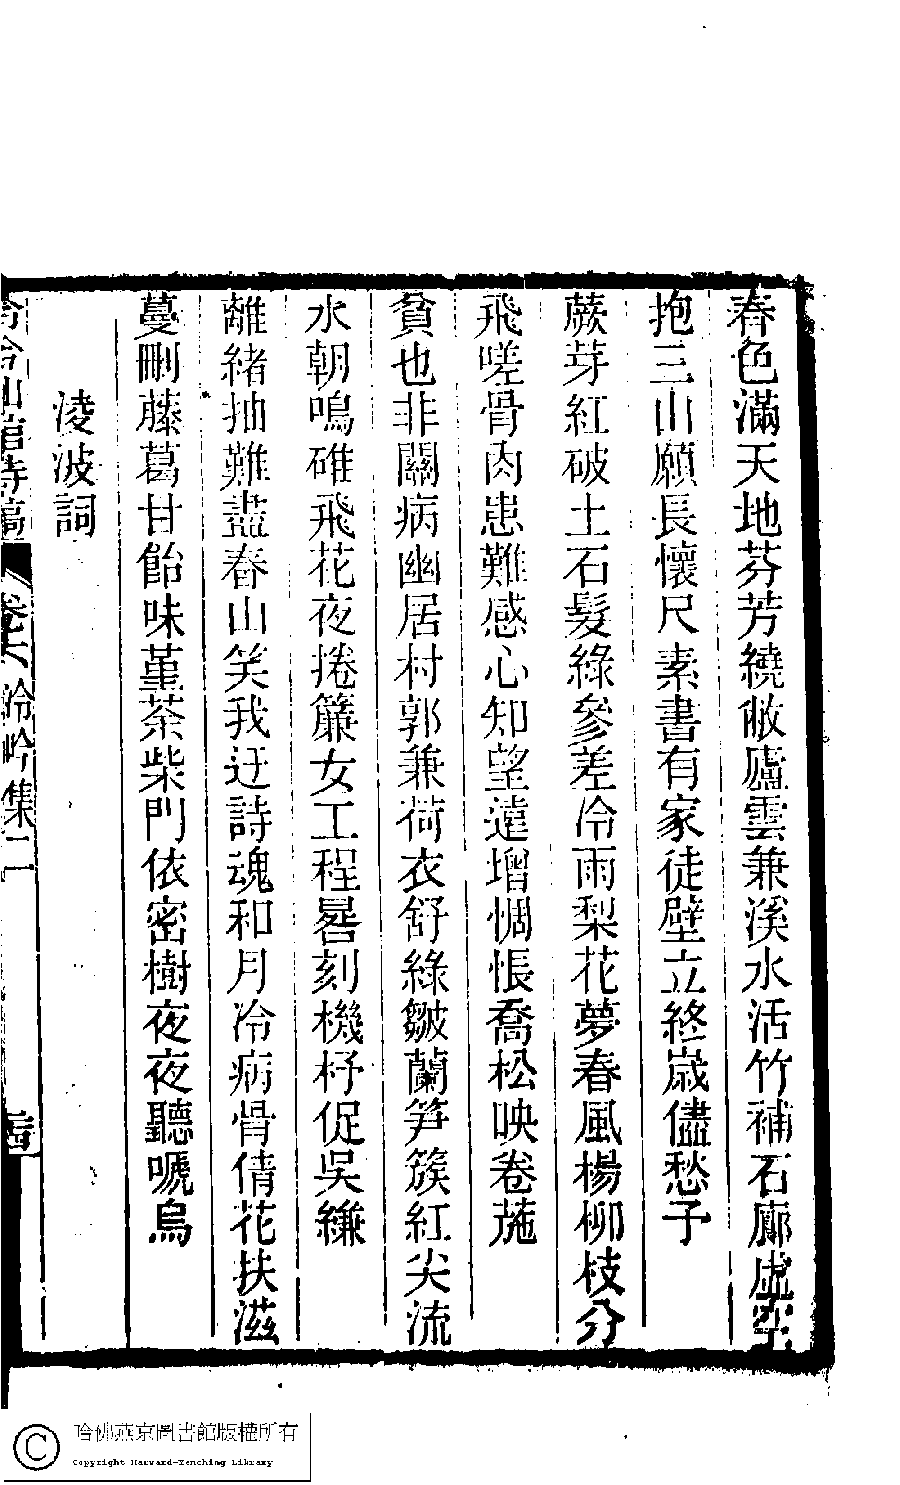 春色滿天地芬芳繞敝廬雲兼溪水活竹補石廊虛空
抱三山願長懷尺素書有家徒壁立終歲儘愁予
蕨芽紅破土石髮綠參差冷雨梨花夢春風楊柳枝分
飛嗟骨肉患難感心知望遠增惆悵喬松映卷葹
貧也非關病幽居村郭兼荷衣舒綠皺蘭笋簇紅尖流
水朝鳴碓飛花夜捲簾女工程晷刻機杼促吳縑
離緒抽難盡春山笑我迂詩魂和月冷病骨倩花扶滋
蔓刪藤葛甘飴味菫荼柴門依密樹夜夜聽嗁烏
淩波詞
吟山館詩稿 卷六 冷吟集二
哈佛燕京圖書館版權所有
Copyright Harvard-Yenching Library